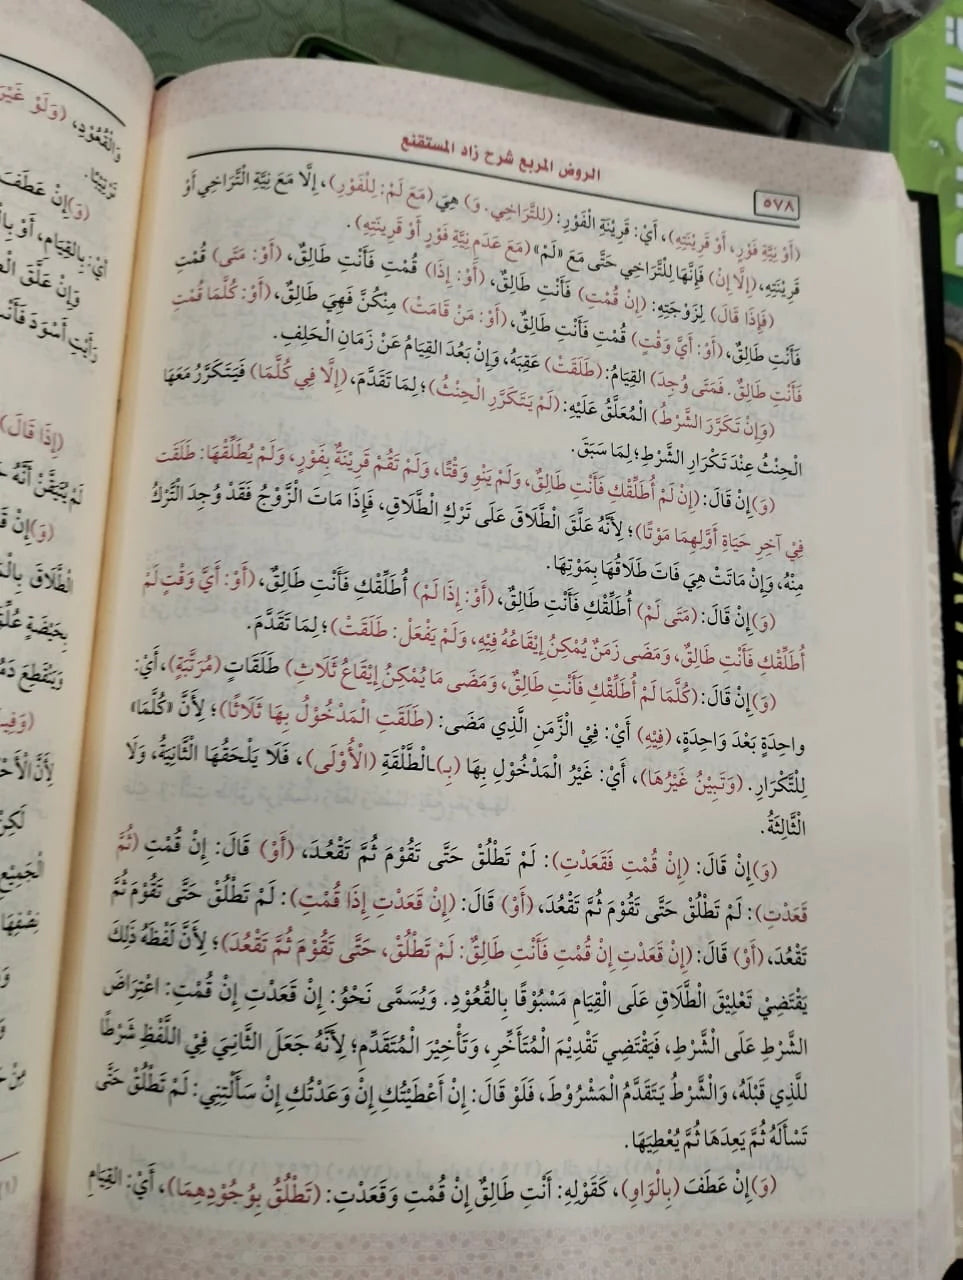 الروض المربع شرح زاد المستقنع
٥٧٨
(أَوْ نِيَّةِ فَوْرٍ، أَوْ قَرِينَتِهِ)، أَيْ: قَرِينَةِ الْفَوْرِ: (لِلتَّرَاخِي. وَ) هِيَ (مَعَ لَمْ: لِلْفَوْرِ)، إِلَّا مَعَ نِيَّةِ التَّرَاخِي أَوْ
قَرِينَتِهِ، (إِلَّا إِنْ) فَإِنَّهَا لِلتَّرَاخِي حَتَّى مَعَ «لَمْ» (مَعَ عَدَمِ نِيَّةِ فَوْرٍ أَوْ قَرِينَتِهِ).
(فَإِذَا قَالَ) لِزَوْجَتِهِ: (إِنْ قُمْتِ) فَأَنْتِ طَالِقٌ، (أَوْ: إِذَا) قُمْتِ فَأَنْتِ طَالِقٌ، (أَوْ: مَتَى) قُمْتِ
فَأَنْتِ طَالِقٌ، (أَوْ: أَيَّ وَقْتٍ) قُمْتِ فَأَنْتِ طَالِقٌ، (أَوْ: مَنْ قَامَتْ) مِنْكُنَّ فَهِيَ طَالِقٌ، (أَوْ: كُلَّمَا قُمْتِ
فَأَنْتِ طَالِقٌ. فَمَتَى وُجِدَ) الْقِيَامُ: (طَلَقَتْ) عَقِبَهُ، وَإِنْ بَعُدَ الْقِيَامُ عَنْ زَمَانِ الْحَلِفِ.
(وَإِنْ تَكَرَّرَ الشَّرْطُ) الْمُعَلَّقُ عَلَيْهِ: (لَمْ يَتَكَرَّرِ الْحِنْثُ)؛ لِمَا تَقَدَّمَ، (إِلَّا فِي كُلَّمَا) فَيَتَكَرَّرُ مَعَهَا
الْحِنْثُ عِنْدَ تَكْرَارِ الشَّرْطِ؛ لِمَا سَبَقَ.
(وَ)إِنْ قَالَ: (إِنْ لَمْ أُطَلِّقْكِ فَأَنْتِ طَالِقٌ، وَلَمْ يَنْوِ وَقْتًا، وَلَمْ تَقُمْ قَرِينَةٌ بِفَوْرٍ، وَلَمْ يُطَلِّقْهَا: طَلَقَتْ
فِي آخِرِ حَيَاةِ أَوَّلِهِمَا مَوْتًا)؛ لِأَنَّهُ عَلَّقَ الْطَّلَاقَ عَلَى تَرْكِ الْطَّلَاقِ، فَإِذَا مَاتَ الْزَّوْجُ فَقَدْ وُجِدَ الْتَّرْكُ
مِنْهُ، وَإِنْ مَاتَتْ هِيَ فَاتَ طَلَاقُهَا بِمَوْتِهَا.
(وَ)إِنْ قَالَ: (مَتَى لَمْ) أُطَلِّقْكِ فَأَنْتِ طَالِقٌ، (أَوْ: إِذَا لَمْ) أُطَلِّقْكِ فَأَنْتِ طَالِقٌ، (أَوْ: أَيَّ وَقْتٍ لَمْ
أُطَلِّقْكِ فَأَنْتِ طَالِقٌ، وَمَضَى زَمَنٌ يُمْكِنُ إِيْقَاعُهُ فِيْهِ، وَلَمْ يَفْعَلْ: طَلَقَتْ)؛ لِمَا تَقَدَّمَ.
(وَ)إِنْ قَالَ: (كُلَّمَا لَمْ أُطَلِّقْكِ فَأَنْتِ طَالِقٌ، وَمَضَى مَا يُمْكِنُ إِيْقَاعُ ثَلَاثِ) طَلَقَاتٍ (مُرَتَّبَةٍ)، أَيْ:
وَاحِدَةٍ بَعْدَ وَاحِدَةٍ، (فِيْهِ) أَيْ: فِيْ الْزَّمَنِ الَّذِي مَضَى: (طَلَقَتِ الْمَدْخُوْلُ بِهَا ثَلَاثًا)؛ لِأَنَّ «كُلَّمَا»
لِلتَّكْرَارِ. (وَتَبِيْنُ غَيْرُهَا)، أَيْ: غَيْرُ الْمَدْخُوْلِ بِهَا (بِـ)ـالْطَّلْقَةِ (الْأُوْلَى)، فَلَا يَلْحَقُهَا الْثَّانِيَةُ، وَلَا
الْثَّالِثَةُ.
(وَ)إِنْ قَالَ: (إِنْ قُمْتِ فَقَعَدْتِ): لَمْ تَطْلُقْ حَتَّى تَقُوْمَ ثُمَّ تَقْعُدَ، (أَوْ) قَالَ: إِنْ قُمْتِ (ثُمَّ
قَعَدْتِ): لَمْ تَطْلُقْ حَتَّى تَقُوْمَ ثُمَّ تَقْعُدَ، (أَوْ) قَالَ: (إِنْ قَعَدْتِ إِذَا قُمْتِ): لَمْ تَطْلُقْ حَتَّى تَقُوْمَ ثُمَّ
تَقْعُدَ، (أَوْ) قَالَ: (إِنْ قَعَدْتِ إِنْ قُمْتِ فَأَنْتِ طَالِقٌ: لَمْ تَطْلُقْ، حَتَّى تَقُوْمَ ثُمَّ تَقْعُدَ)؛ لِأَنَّ لَفْظَهُ ذَلِكَ
يَقْتَضِيْ تَعْلِيْقَ الْطَّلَاقِ عَلَى الْقِيَامِ مَسْبُوْقًا بِالقُعُوْدِ. وَيُسَمَّى نَحْوُ: إِنْ قَعَدْتِ إِنْ قُمْتِ: اعْتِرَاضَ
الشَّرْطِ عَلَى الْشَّرْطِ، فَيَقْتَضِي تَقْدِيْمَ الْمُتَأَخِّرِ، وَتَأْخِيْرَ الْمُتَقَدِّمِ؛ لِأَنَّهُ جَعَلَ الْثَّانِيَ فِيْ اللَّفْظِ شَرْطًا
لِلَّذِي قَبْلَهُ، وَالْشَّرْطُ يَتَقَدَّمُ الْمَشْرُوْطَ، فَلَوْ قَالَ: إِنْ أَعْطَيْتُكِ إِنْ وَعَدْتُكِ إِنْ سَأَلْتِنِي: لَمْ تَطْلُقْ حَتَّى
تَسْأَلَهُ ثُمَّ يَعِدَهَا ثُمَّ يُعْطِيَهَا.
(وَ)إِنْ عَطَفَ (بِالْوَاوِ)، كَقَوْلِهِ: أَنْتِ طَالِقٌ إِنْ قُمْتِ وَقَعَدْتِ: (تَطْلُقُ بِوُجُوْدِهِمَا)، أَيْ: القِيَامِ
وَالْقُعُوْدِ، (وَلَوْ غَيْرَ
(وَ)إِنْ عَطَفَ
أَيْ: بِالقِيَامِ، أَوْ
وَإِنْ عَلَّقَ
رَأَيْتِ أَسْوَدَ
(إِذَا قَالَ)
لَمْ يُتَيَقَّنْ أَنَّهُ
(وَ)إِنْ
الْطَّلَاقَ
بِحَيْضَةٍ
وَيَنْقَطِعَ
لِأَنَّ
لَكِنْ
الْجَمِيْعِ